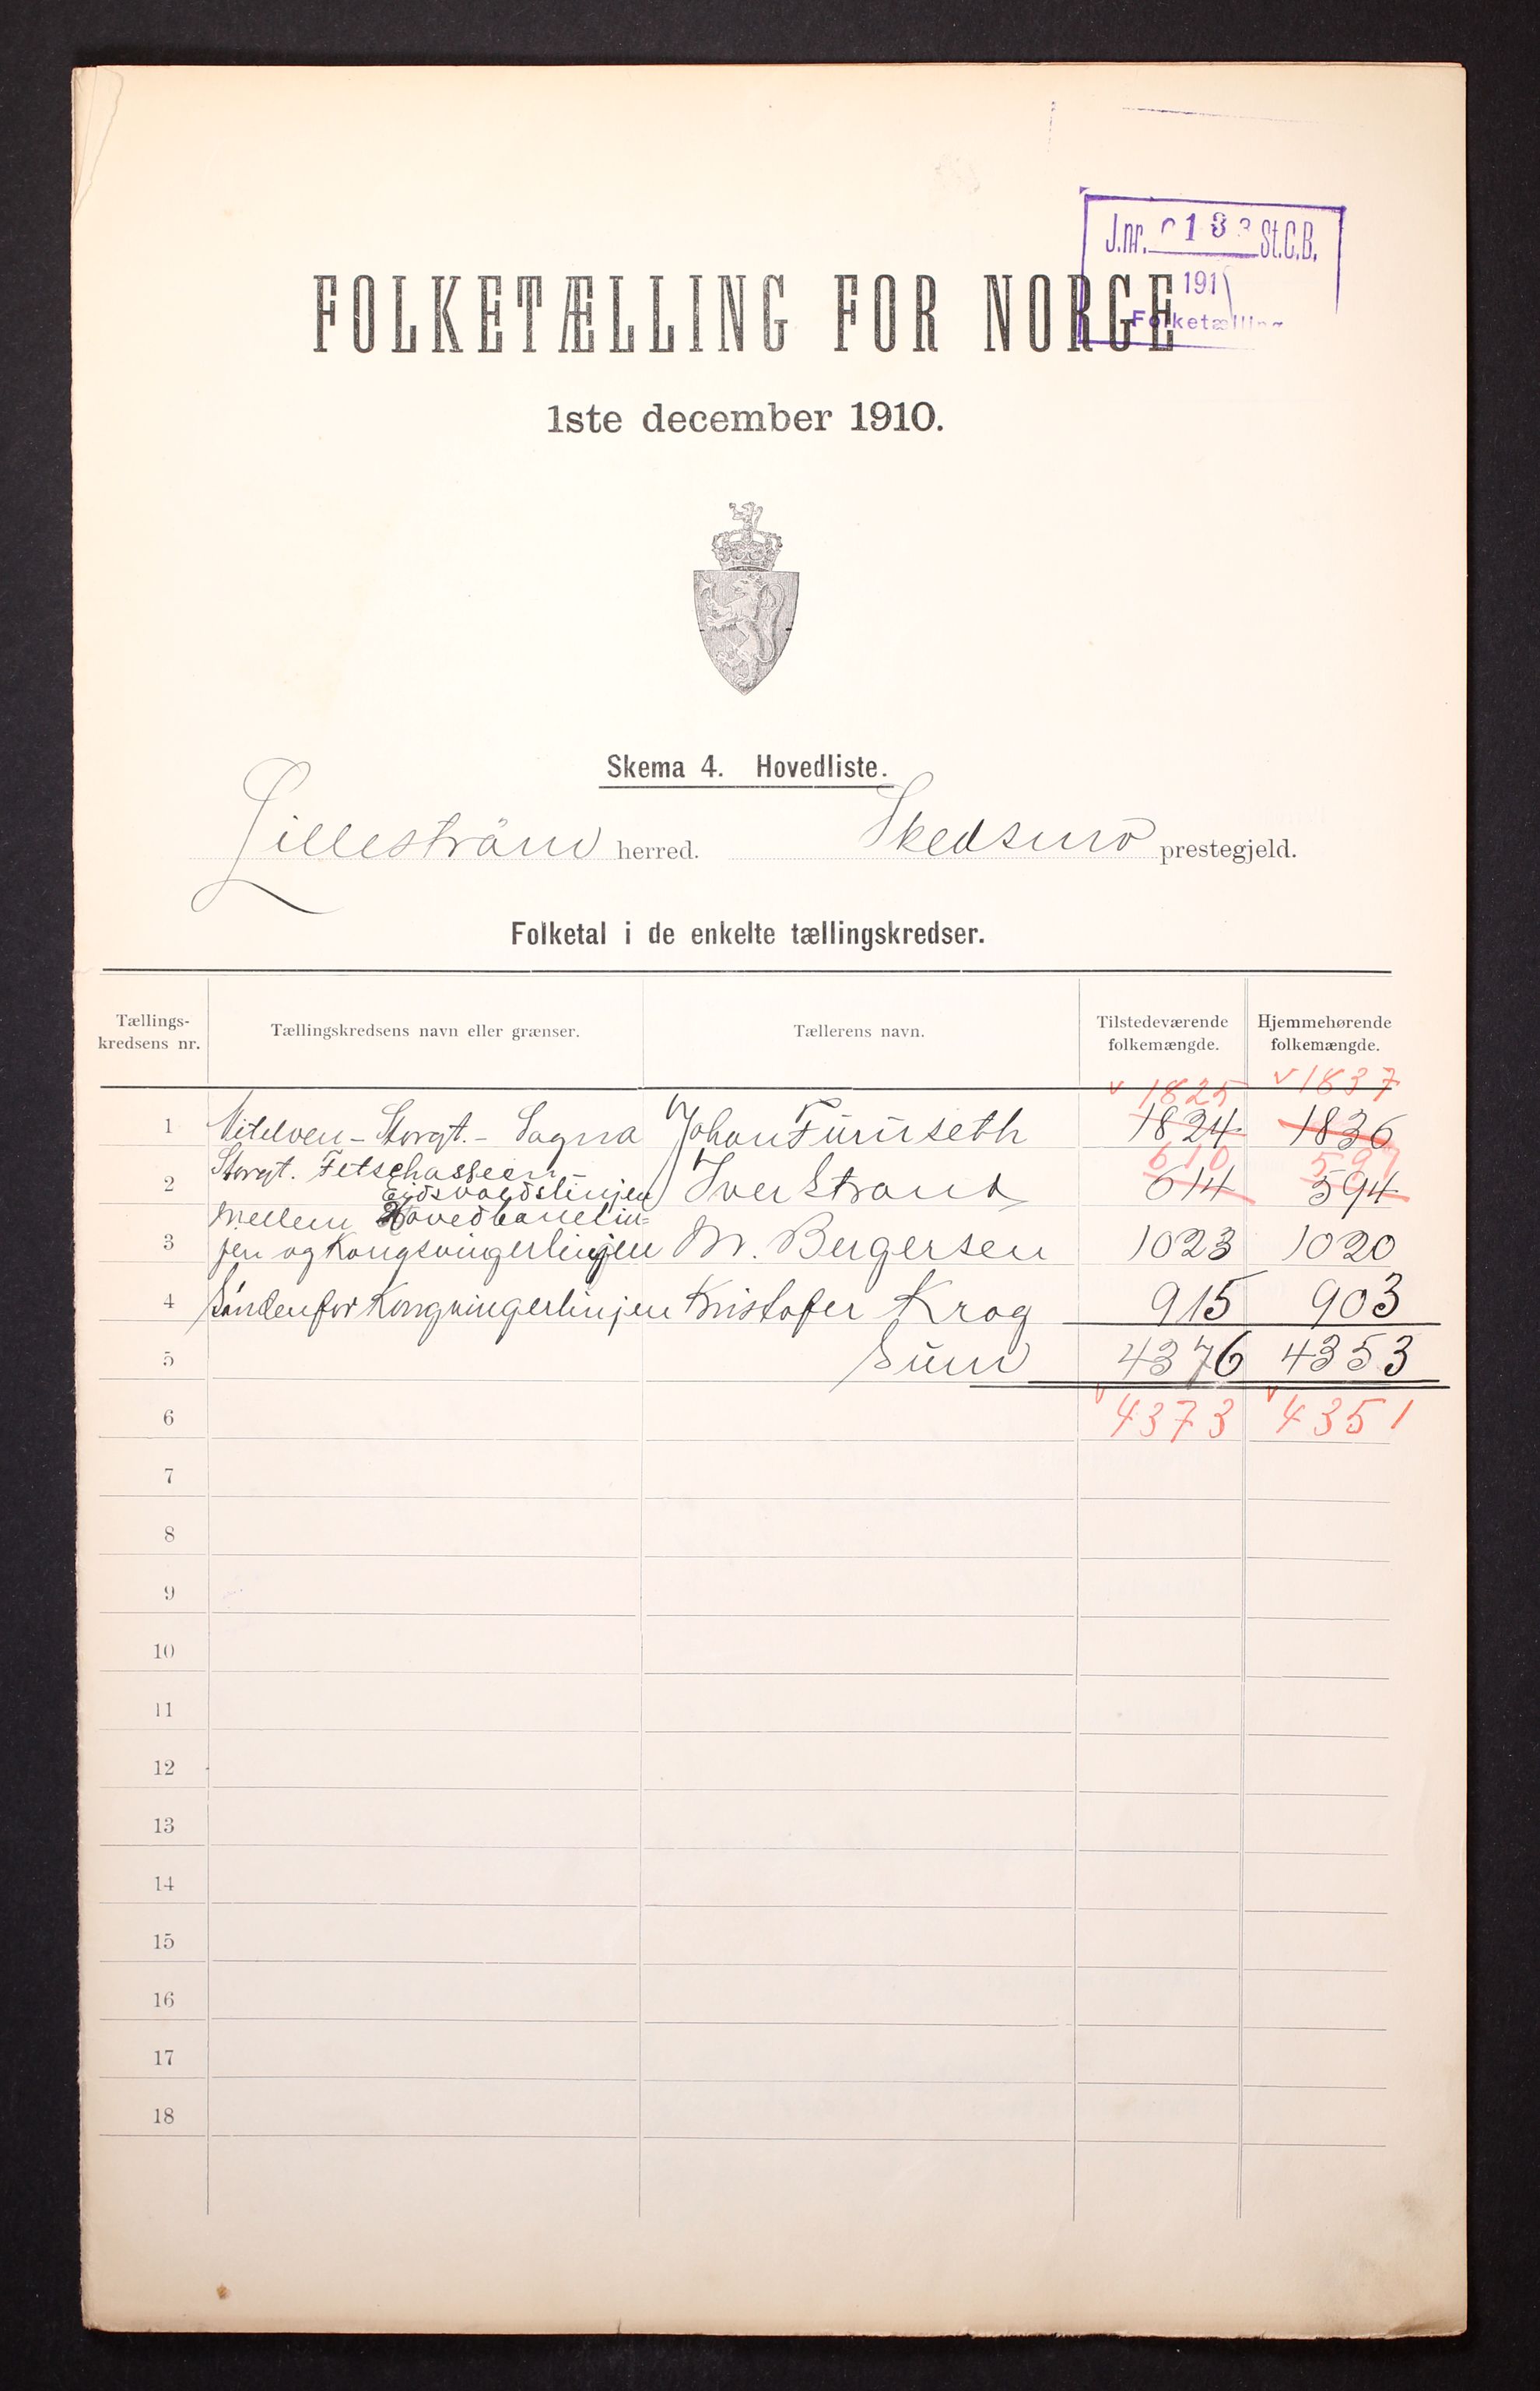 J.nr. 183 St.C.B.
191
Folketælling
FOLKETÆLLING FOR NORGE
1ste december 1910.
Skema 4. Hovedliste.
Lilleström herred. Skedsmo prestegjeld.
Folketal i de enkelte tællingskredser.
Tællings-
kredsens nr.
Tællingskredsens navn eller grænser.
Tællerens navn.
Tilstedeværende
folkemængde.
Hjemmehørende
folkemængde.
v 1825 v 1837
1 Nitelven - Storgt. - Sagna Johan Furuseth 1824 1836
610 597
Storgt. Fetschasseen -
2 Eidsvoldslinjen Iver Strand 614 594
Mellem Hovedbanelin=
3 jen og Kongsvingerlinjen M. Bergersen 1023 1020
4 Söndenfor Kongvingerlinjen Kristofer Krog 915 903
5 Sum 4376 4353
6 v 4373 v 4351
7
8
9
10
11
12
13
14
15
16
17
18